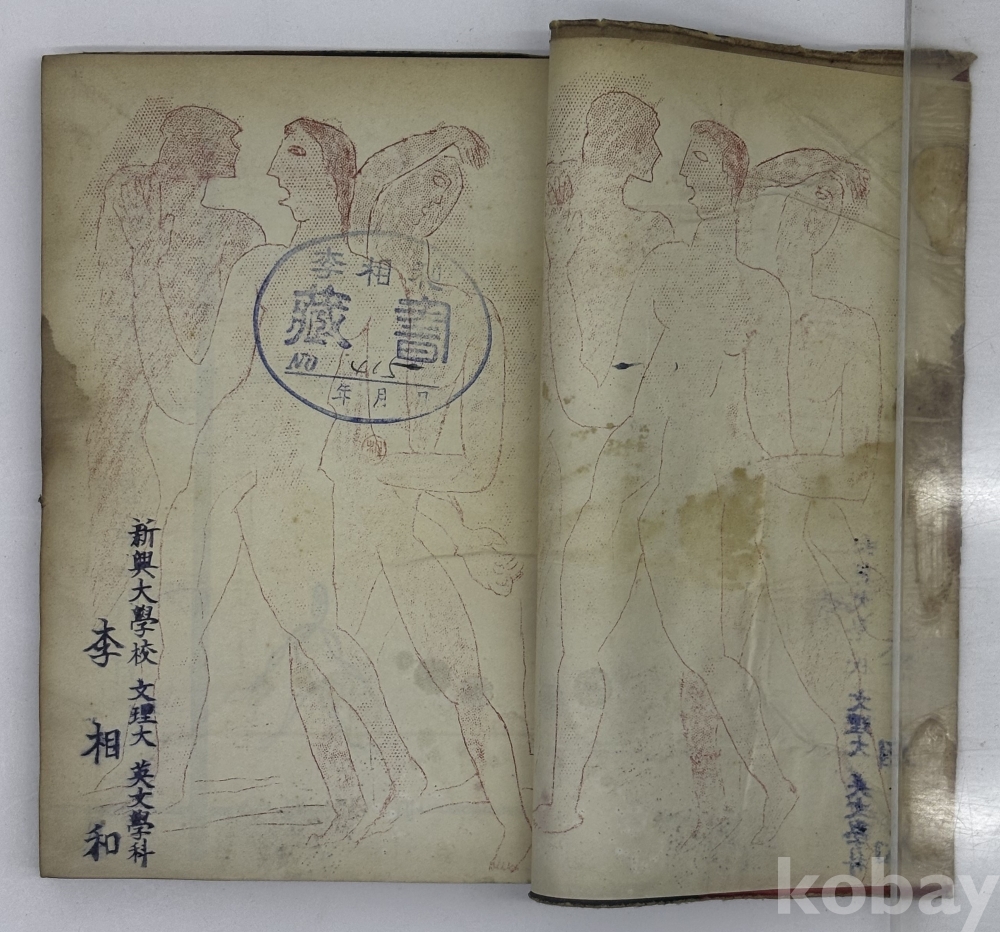 李相和
藏書
NO 415
年 月 日
新興大學校 文理大 英文學科
李相和
文理大 英文學科
kobay